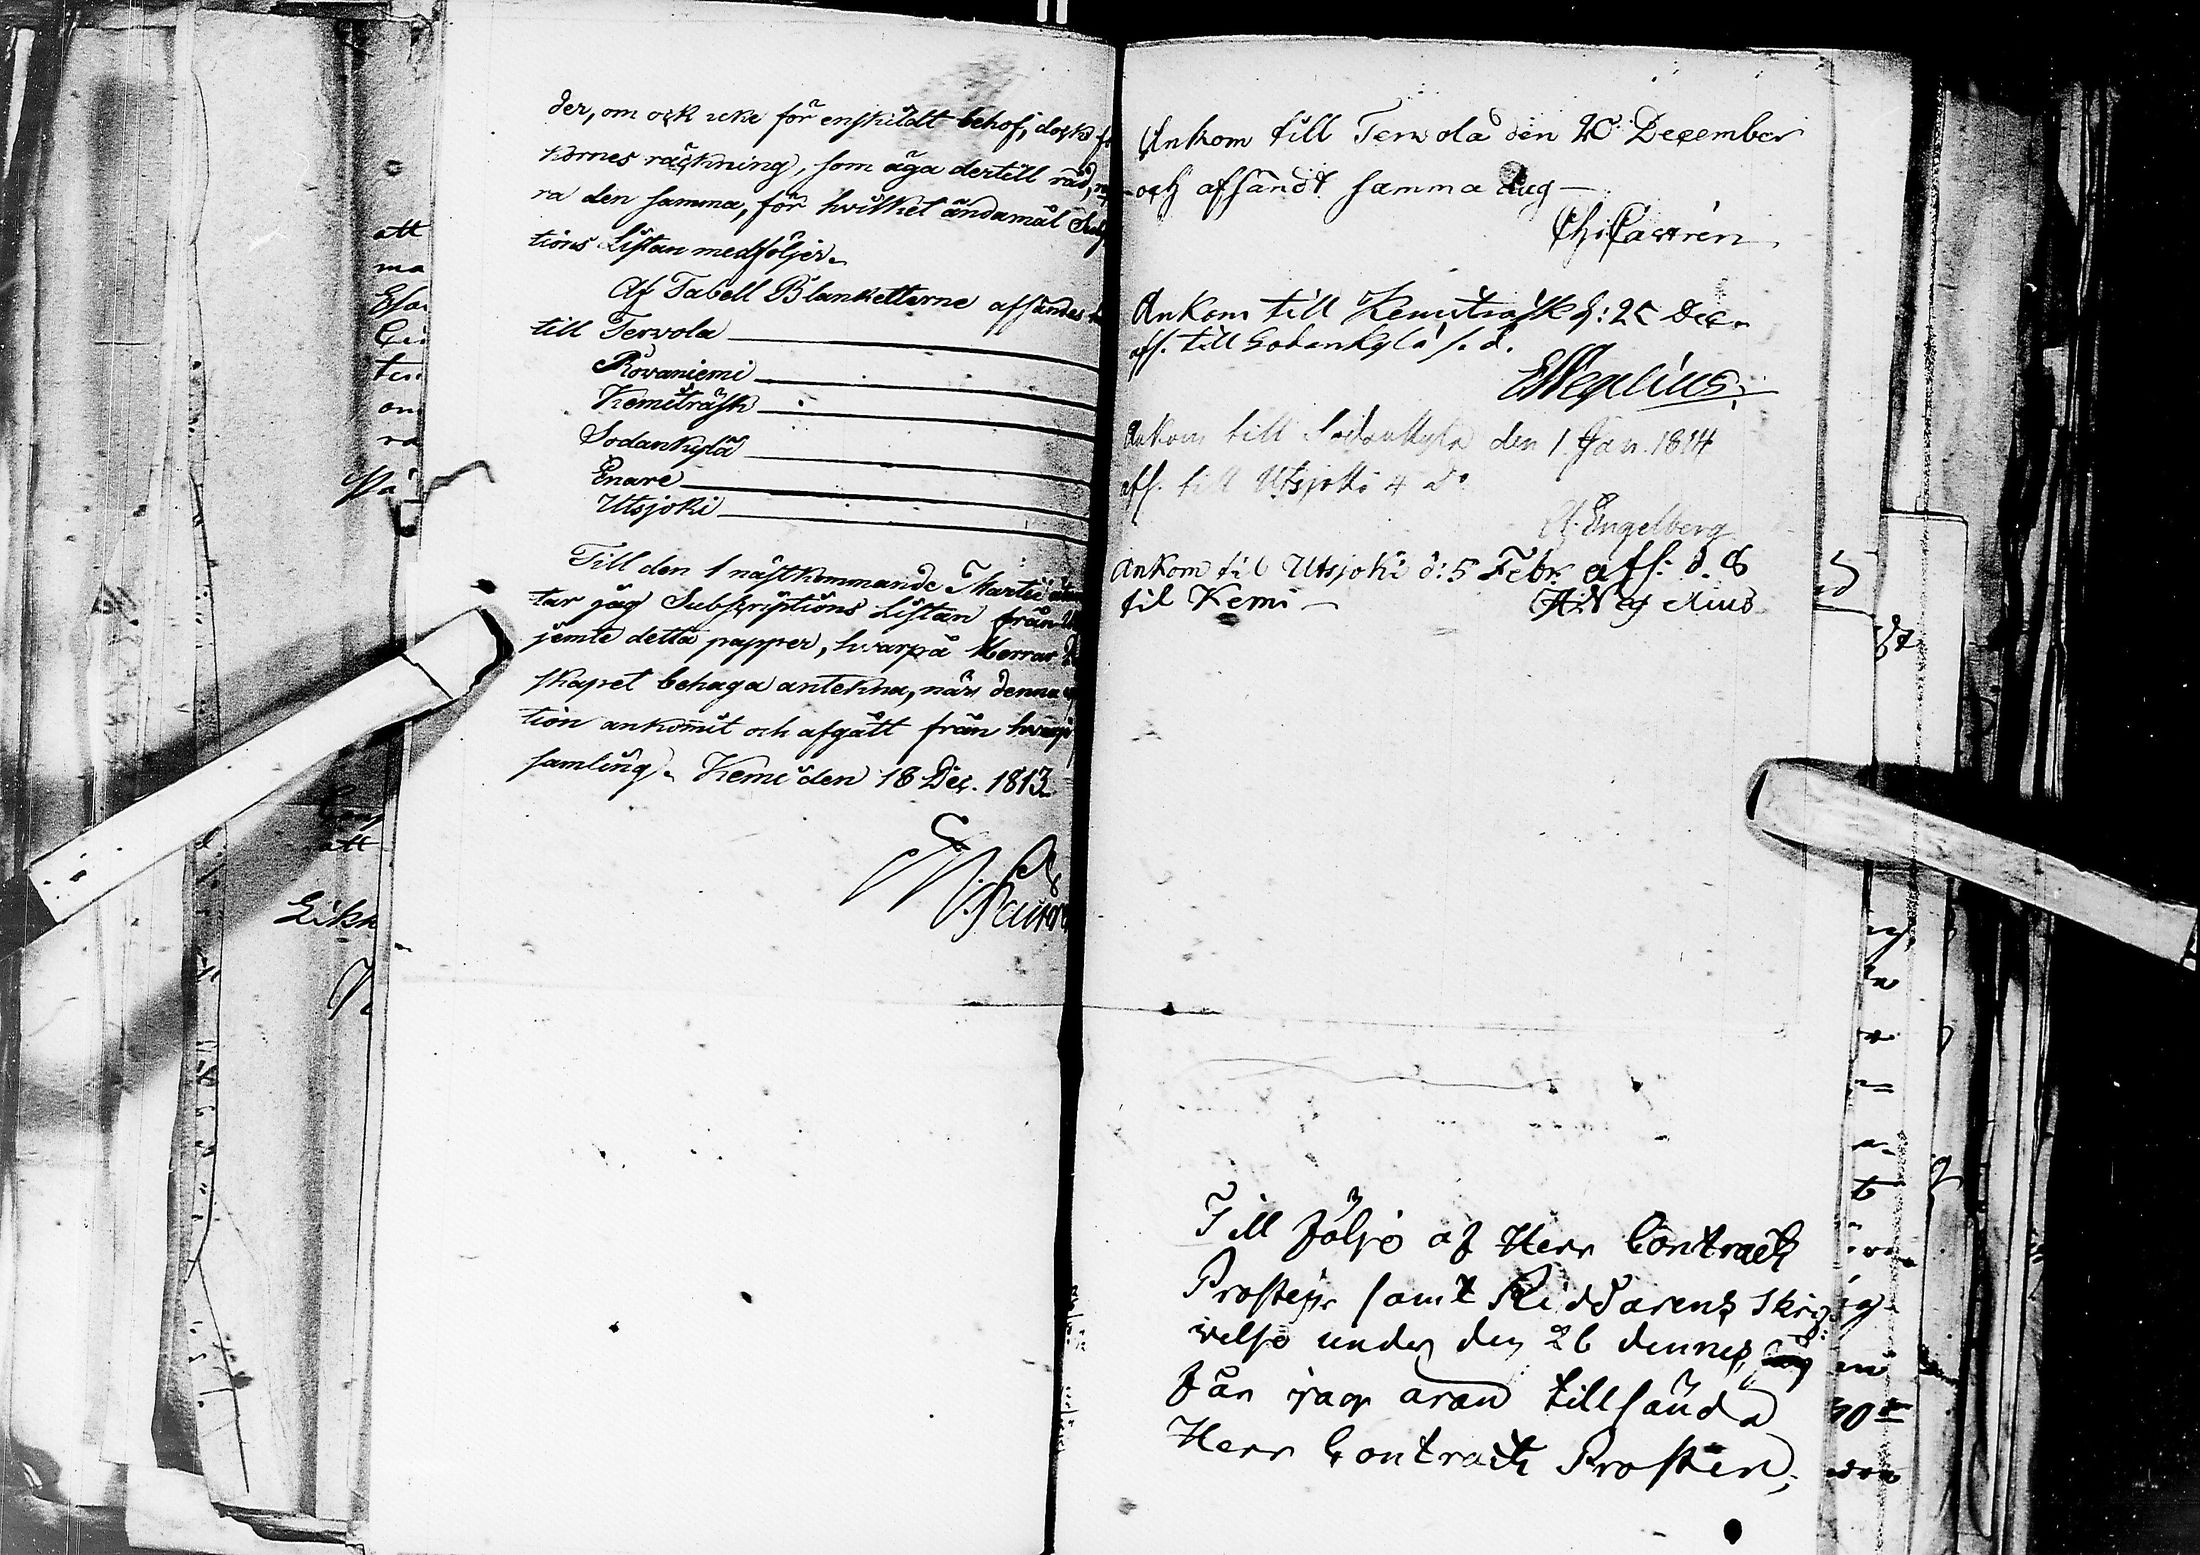 der, om ock icke för enskildt behof, dock
kornes räckning, som äga dertill råd,
ra den samma, för hvilket ändamål Sub
tions Listan medföljer.
Af Tabell Blanketterne afsändes
till Tervola
Rovaniemi
Kemiträsk
Sodankylä
Enare
Utsjoki
Till den 1 nästkommande Martii
tar jag Subscriptions Listan från
jemte detta papper, hvarpå Herrar
skapet behaga antekna, när denna
tion ankomit och afgått från hvarje
samling. Kemi den 18 Dec. 1813
Ankom till Tervola den 20 December
och afsändt samma dag
Castrén
Ankom till Kemiträsk d: 25 Dec.
afs. till Sodankylä s. d.
EWegelius
Ankom till Sodankylä den 1 Jan. 1814
afs. till Utsjoki 4 do
Engelberg
Ankom til Utsjoki d: 5 Febr. afs: d. 8
til Kemi
Wegelius
Till följe af Herr Contracts
Prosten samt Riddarens Skrif
velse under den 26 dennes,
får jag äran tillsända
Herr Contracts Prosten,
att
ma
ten
om
ra
På
att